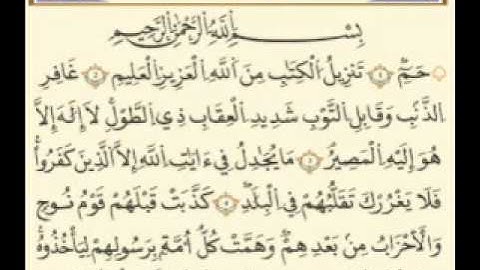 بِسْمِ اللَّهِ الرَّحْمَٰنِ الرَّحِيمِ
حَمِٓ تَنزِيلُ الْكِتَٰبِ مِنَ اللَّهِ الْعَزِيزِ الْعَلِيمِ غَافِرِ
الذَّنۢبِ وَقَابِلِ التَّوْبِ شَدِيدِ الْعِقَابِ ذِي الطَّوْلِ لَآ إِلَٰهَ إِلَّا
هُوَ إِلَيْهِ الْمَصِيرُ مَا يُجَٰدِلُ فِىٓ ءَايَٰتِ اللَّهِ إِلَّا الَّذِينَ كَفَرُواْ
فَلَا يَغْرُرْكَ تَقَلُّبُهُمْ فِي الْبِلَٰدِ كَذَّبَتْ قَبْلَهُمْ قَوْمُ نُوحٍ
وَالْأَحْزَابُ مِنۢ بَعْدِهِمْ وَهَمَّتْ كُلُّ أُمَّةٍۭ بِرَسُولِهِمْ لِيَأْخُذُوهُ